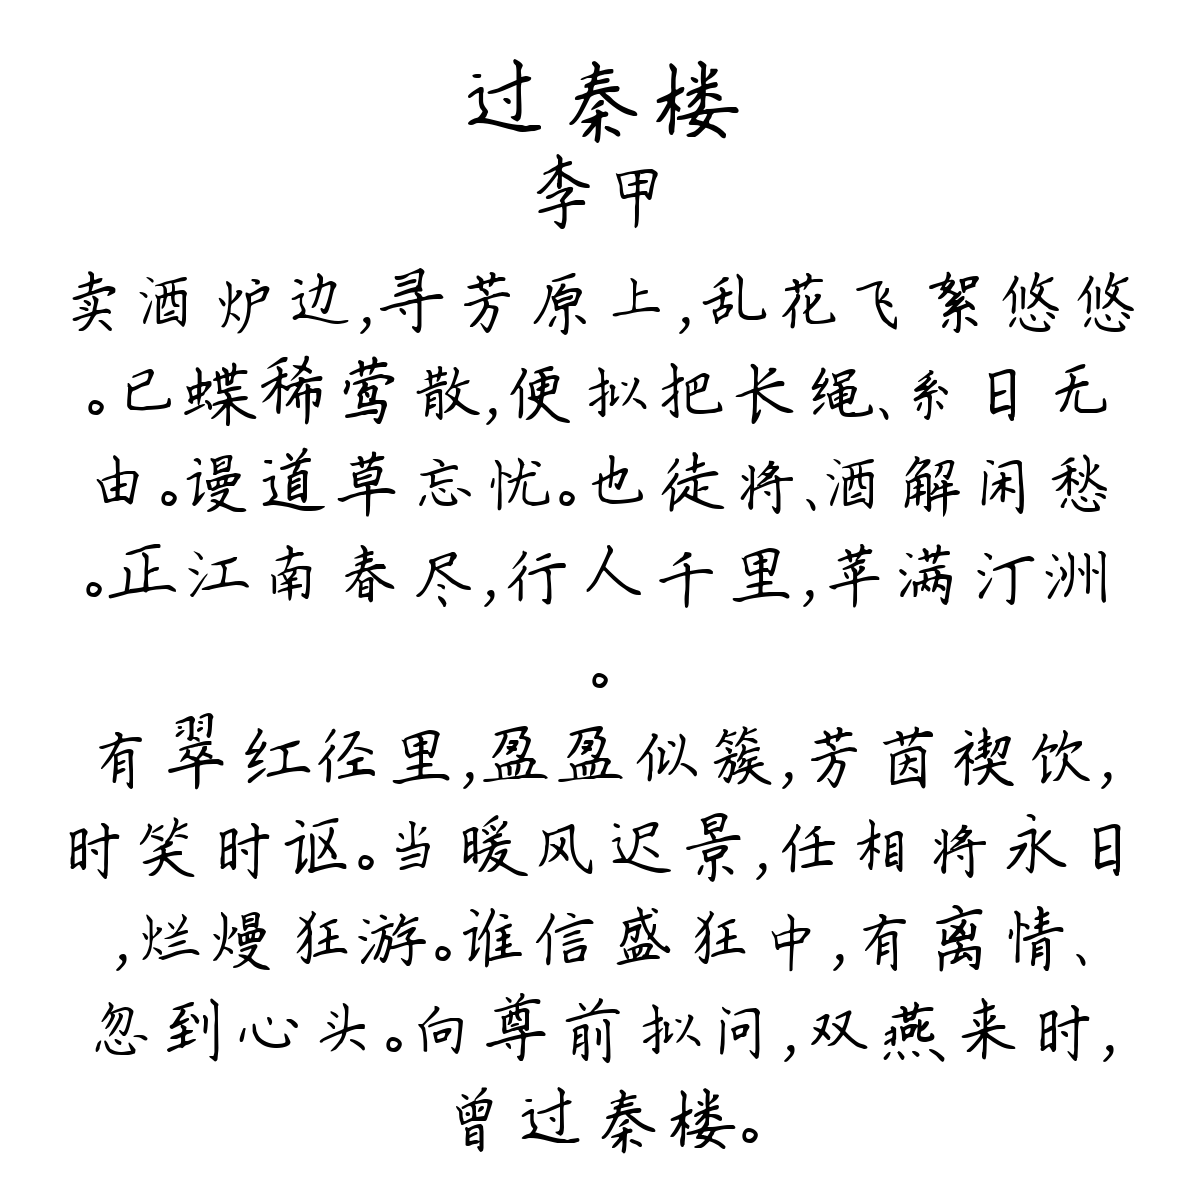 过秦楼
李甲
卖酒炉边,寻芳原上,乱花飞絮悠悠
。已蝶稀莺散,便拟把长绳、系日无
由。谩道草忘忧。也徒将、酒解闲愁
。正江南春尽,行人千里,苹满汀洲
。
有翠红径里,盈盈似簇,芳茵禊饮,
时笑时讴。当暖风迟景,任相将永日
,烂熳狂游。谁信盛狂中,有离情、
忽到心头。向尊前拟问,双燕来时,
曾过秦楼。